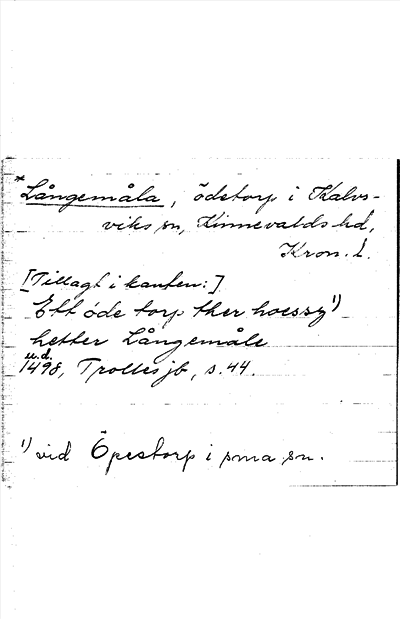 *Långemåla, ödetorp i Kalvs-
viks sn, Kinnevalds hd,
Kron. l.
[Tillagt i kanten:]
Ett öde torp ther hoessz 1)
hetter Långemåle
u.d.
1498, Trolles jb, s. 44.
1) vid Öpestorp i sma sn.